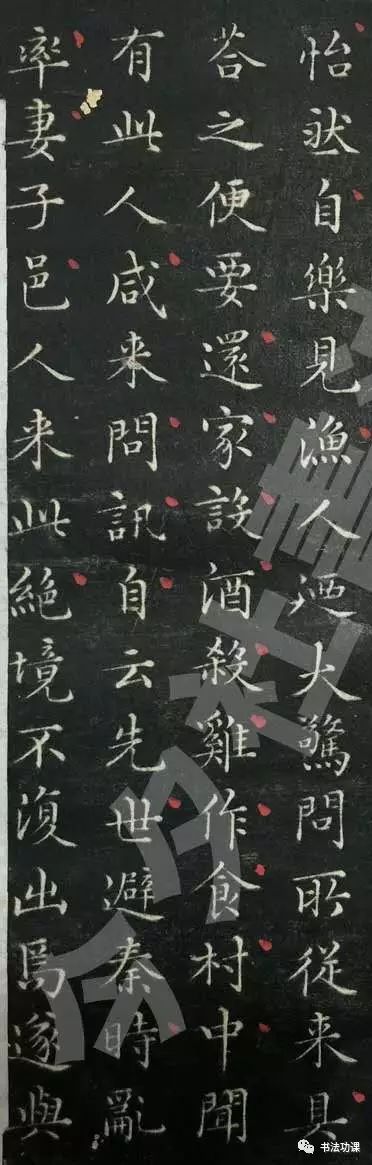 怡然自樂見漁人迺大驚問所從来具
荅之便要還家設酒殺雞作食村中聞
有此人咸来問訊自云先世避秦時亂
率妻子邑人来此絕境不復出焉遂與
书法功课